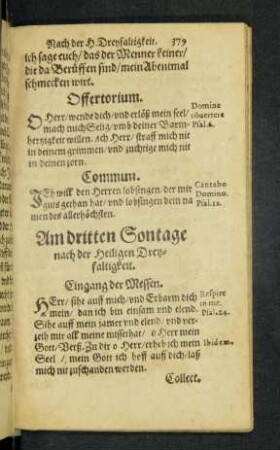 Nach der H. Dreyfaltigkeit. 379
ich sage euch/ das der Menner keiner/
die da Berüffen sind/ mein Abentmal
schmecken wirt.
Offertorium.
O Herr/ wende dich/ vnd erlöß mein seel/
mach mich Selig/ vmb deiner Barm-
hertzigkeit willen. Ach Herr/ straff mich nit
in deinem grimmen/ vnd züchtige mich nit
in deinen zorn.
Domine
Psal.6.
Commun.
ICh wil den Herren lobsingen, der mir
guts gethan hat/ vnd lobsingen dein na
men des allerhöchsten.
Cantabo
Domino.
Psal.12.
Am dritten Sontage
nach der Heiligen Drey-
faltigkeit.
Eingang der Messen.
HErr/ sihe auff mich/ vnd Erbarm dich
mein/ dan ich bin einsam vnd elend.
Sihe auff mein jamer vnd elend/ vnd ver-
zeih mir alle meine missethat/ o Herr mein
Gott/ Verß. Zu dir o Herr/ erheb ich mein
Seel/ mein Gott ich hoff auff dich/ laß
mich nit zuschanden werden.
Respice
in me.
Psal.24.
Ibidem.
Collect.